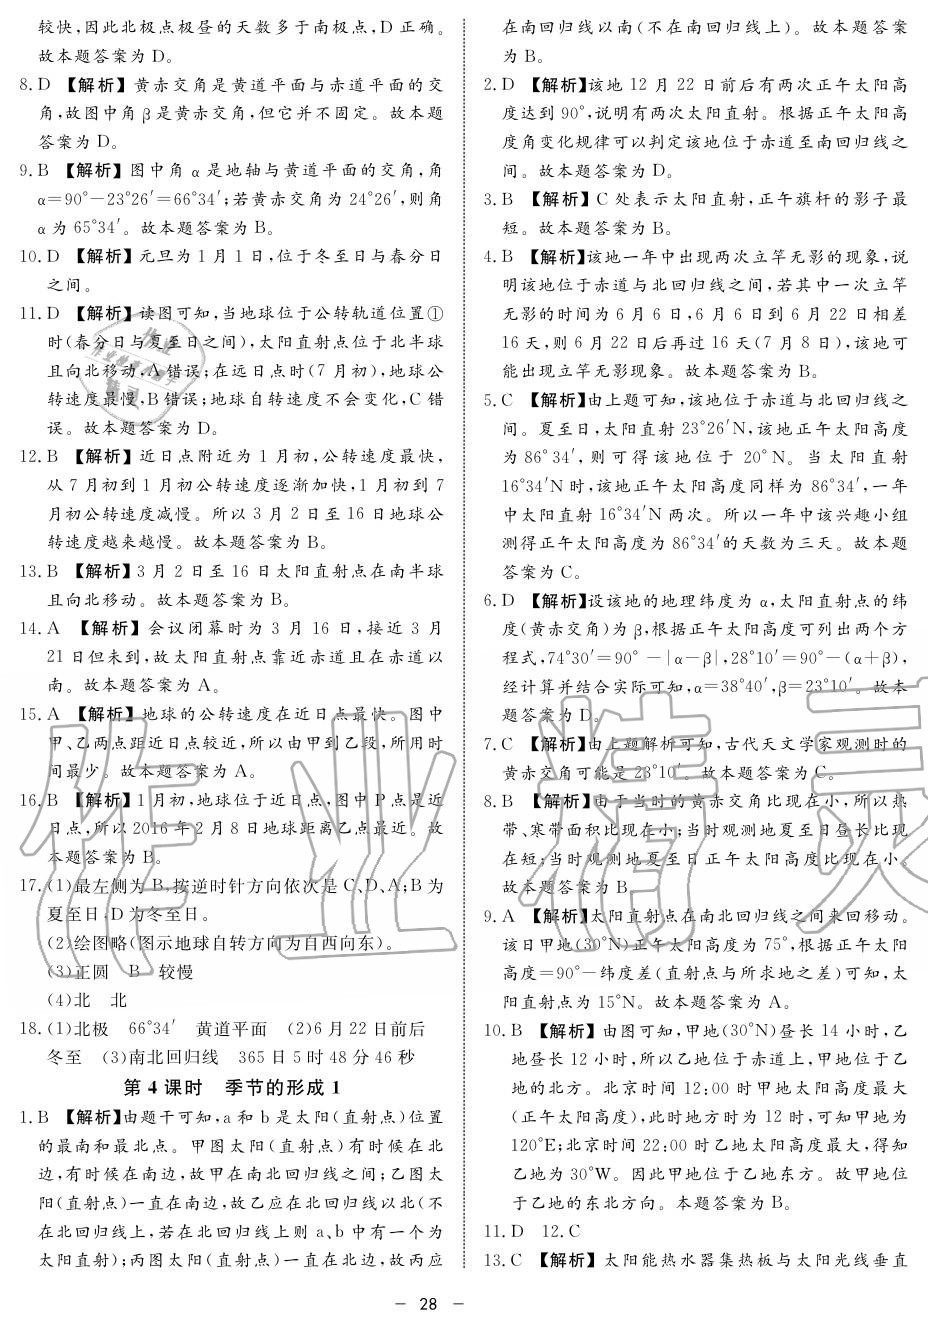 较快,因此北极点极昼的天数多于南极点,D 正确。
故本题答案为 D。
8.D 【解析】黄赤交角是黄道平面与赤道平面的交
角,故图中角 β 是黄赤交角,但它并不固定。故本题
答案为 D。
9.B 【解析】图中角 α 是地轴与黄道平面的交角,角
α=90°-23°26′=66°34′;若黄赤交角为 24°26′,则角
α 为 65°34′。故本题答案为 B。
10.D 【解析】元旦为 1 月 1 日,位于冬至日与春分日
之间。
11.D 【解析】读图可知,当地球位于公转轨道位置①
时(春分日与夏至日之间),太阳直射点位于北半球
且向北移动,A 错误;在远日点时(7 月初),地球公
转速度最慢,B 错误;地球自转速度不会变化,C 错
误。故本题答案为 D。
12.B 【解析】近日点附近为 1 月初,公转速度最快,
从 7 月初到 1 月初公转速度逐渐加快,1 月初到 7
月初公转速度减慢。所以 3 月 2 日至 16 日地球公
转速度越来越慢。故本题答案为 B。
13.B 【解析】3 月 2 日至 16 日太阳直射点在南半球
且向北移动。故本题答案为 B。
14.A 【解析】会议闭幕时为 3 月 16 日,接近 3 月
21 日但未到,故太阳直射点靠近赤道且在赤道以
南。故本题答案为 A。
15.A 【解析】地球的公转速度在近日点最快。图中
甲、乙两点距近日点较近,所以由甲到乙段,所用时
间最少。故本题答案为 A。
16.B 【解析】1 月初,地球位于近日点,图中 P 点是近
日点,所以 2016 年 2 月 8 日地球距离乙点最近。故
本题答案为 B。
17.(1)最左侧为 B,按逆时针方向依次是 C、D、A;B 为
夏至日,D 为冬至日。
(2)绘图略(图示地球自转方向为自西向东)。
(3)正圆 B 较慢
(4)北 北
18.(1)北极 66°34′ 黄道平面 (2)6 月 22 日前后
冬至 (3)南北回归线 365 日 5 时 48 分 46 秒
第 4 课时 季节的形成 1
1.B 【解析】由题干可知,a 和 b 是太阳(直射点)位置
的最南和最北点。甲图太阳(直射点)有时候在北
边,有时候在南边,故甲在南北回归线之间;乙图太
阳(直射点)一直在南边,故乙应在北回归线以北(不
在北回归线上,若在北回归线上则 a、b 中有一个为
太阳直射);丙图太阳(直射点)一直在北边,故丙应
在南回归线以南(不在南回归线上)。故本题答案
为 B。
2.D 【解析】该地 12 月 22 日前后有两次正午太阳高
度达到 90°,说明有两次太阳直射。根据正午太阳高
度角变化规律可以判定该地位于赤道至南回归线之
间。故本题答案为 D。
3.B 【解析】C 处表示太阳直射,正午旗杆的影子最
短。故本题答案为 B。
4.B 【解析】该地一年中出现两次立竿无影的现象,说
明该地位于赤道与北回归线之间,若其中一次立竿
无影的时间为 6 月 6 日,6 月 6 日到 6 月 22 日相差
16 天,则 6 月 22 日后再过 16 天(7 月 8 日),该地可
能出现立竿无影现象。故本题答案为 B。
5.C 【解析】由上题可知,该地位于赤道与北回归线之
间。夏至日,太阳直射 23°26′N,该地正午太阳高度
为 86°34′,则可得该地位于 20°N。当太阳直射
16°34′N 时,该地正午太阳高度同样为 86°34′,一年
中太阳直射 16°34′N 两次。所以一年中该兴趣小组
测得正午太阳高度为 86°34′的天数为三天。故本题
答案为 C。
6.D 【解析】设该地的地理纬度为 α,太阳直射点的纬
度(黄赤交角)为 β,根据正午太阳高度可列出两个方
程式,74°30′=90°-|α-β|,28°10′=90°-(α+β),
经计算并结合实际可知,α=38°40′,β=23°10′。故本
题答案为 D。
7.C 【解析】由上题解析可知,古代天文学家观测时的
黄赤交角可能是 23°10′。故本题答案为 C。
8.B 【解析】由于当时的黄赤交角比现在小,所以热
带、寒带面积比现在小;当时观测地夏至日昼长比现
在短;当时观测地夏至日正午太阳高度比现在小。
故本题答案为 B。
9.A 【解析】太阳直射点在南北回归线之间来回移动。
该日甲地(30°N)正午太阳高度为 75°,根据正午太阳
高度=90°-纬度差(直射点与所求地之差)可知,太
阳直射点为 15°N。故本题答案为 A。
10.B 【解析】由图可知,甲地(30°N)昼长 14 小时,乙
地昼长 12 小时,所以乙地位于赤道上,甲地位于乙
地的北方。北京时间 12:00 时甲地太阳高度最大
(正午太阳高度),此时地方时为 12 时,可知甲地为
120°E;北京时间 22:00 时乙地太阳高度最大,得知
乙地为 30°W。因此甲地位于乙地东方。故甲地位
于乙地的东北方向。本题答案为 B。
11.D 12.C
13.C 【解析】太阳能热水器集热板与太阳光线垂直
— 28 —
作业精灵